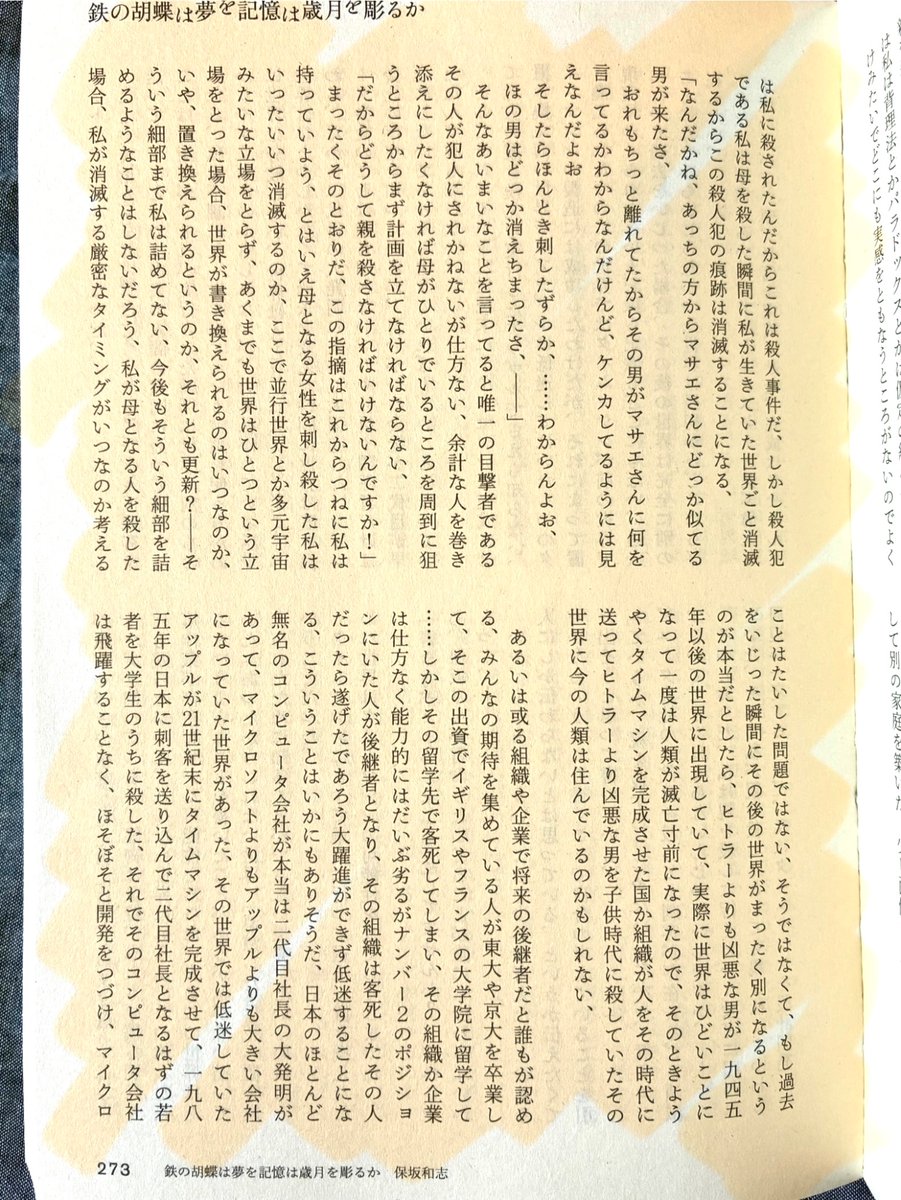 鉄の胡蝶は夢を記憶は歳月を彫るか
は私は背理法とかパラドックスとか仮定の
けみたいでどこにも実感をともなうところがないのでよく
して別の家庭を築いた
は私に殺されたんだからこれは殺人事件だ、しかし殺人犯
である私は母を殺した瞬間に私が生きていた世界ごと消滅
するからこの殺人犯の痕跡は消滅することになる、
「なんだかね、あっちの方からマサエさんにどっか似てる
男が来たさ、
おれもちっと離れてたからその男がマサエさんに何を
言ってるかわからなんだけんど、ケンカしてるようには見
えなんだよお
そしたらほんとき刺したずらか、……わからんよお、
ほの男はどっか消えちまったさ、――」
そんなあいまいなことを言ってると唯一の目撃者である
その人が犯人にされかねないが仕方ない、余計な人を巻き
添えにしたくなければ母がひとりでいるところを周到に狙
うところからまず計画を立てなければならない、
「だからどうして親を殺さなければいけないんですか！」
まったくそのとおりだ、この指摘はこれからつねに私は
持っていよう、とはいえ母となる女性を刺し殺した私は
いったいいつ消滅するのか、ここで並行世界とか多元宇宙
みたいな立場をとらず、あくまでも世界はひとつという立
場をとった場合、世界が書き換えられるのはいつなのか、
いや、置き換えられるというのか、それとも更新？――そ
ういう細部まで私は詰めてない、今後もそういう細部を詰
めるようなことはしないだろう、私が母となる人を殺した
場合、私が消滅する厳密なタイミングがいつなのか考える
ことはたいした問題ではない、そうではなくて、もし過去
をいじった瞬間にその後の世界がまったく別になるという
のが本当だとしたら、ヒトラーよりも凶悪な男が一九四五
年以後の世界に出現していて、実際に世界はひどいことに
なって一度は人類が滅亡寸前になったので、そのときよう
やくタイムマシンを完成させた国か組織が人をその時代に
送ってヒトラーより凶悪な男を子供時代に殺していたその
世界に今の人類は住んでいるのかもしれない、
あるいは或る組織や企業で将来の後継者だと誰もが認め
る、みんなの期待を集めている人が東大や京大を卒業し
て、そこの出資でイギリスやフランスの大学院に留学して
……しかしその留学先で客死してしまい、その組織か企業
は仕方なく能力的にはだいぶ劣るがナンバー２のポジショ
ンにいた人が後継者となり、その組織は客死したその人
だったら遂げたであろう大躍進ができず低迷することにな
る、こういうことはいかにもありそうだ、日本のほとんど
無名のコンピュータ会社が本当は二代目社長の大発明が
あって、マイクロソフトよりもアップルよりも大きい会社
になっていた世界があった、その世界では低迷していた
アップルが21世紀末にタイムマシンを完成させて、一九八
五年の日本に刺客を送り込んで二代目社長となるはずの若
者を大学生のうちに殺した、それでそのコンピュータ会社
は飛躍することなく、ほそぼそと開発をつづけ、マイクロ
273 鉄の胡蝶は夢を記憶は歳月を彫るか 保坂和志